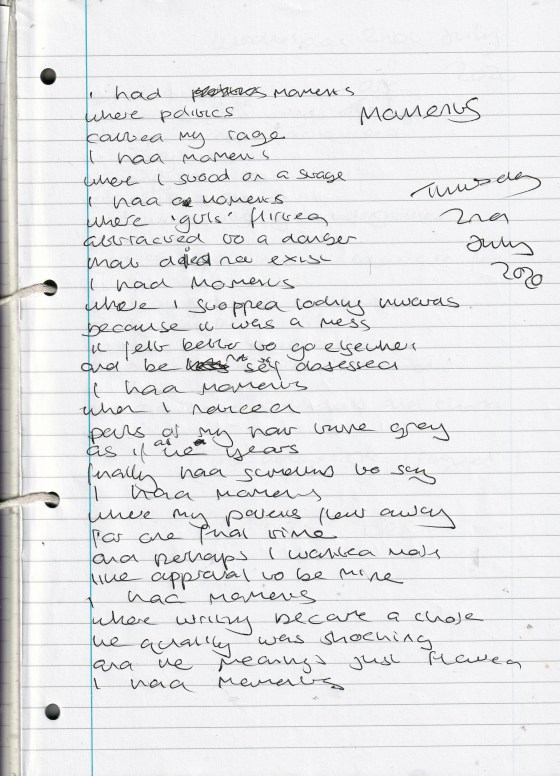 I had moments
Moments
where politics
called my rage
I had moments
where I stood on a stage
Thursday
I had moments
2nd
where 'girls' flirted
July
attracted to a danger
2020
that did not exist
I had moments
where I stopped looking inwards
because it was a mess
it felt better to go elsewhere
and be less self obsessed
I had moments
when I noticed
parts of my hair turn grey
as if the years
finally had something to say
I had moments
where my parents flew away
for one final time
and perhaps I wanted more
like approval to be mine
I had moments
where writing became a chore
the quality was shocking
and the meanings just flawed
I had moments